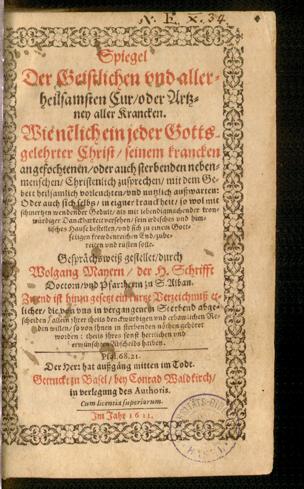 N. E. X. 34.
Spiegel
Der Geistlichen vnd aller-
heilsamsten Cur/oder Artz-
ney aller Krancken.
Wie nēlich ein jeder Gotts-
gelehrter Christ/ seinem krancken
angefochtenen/oder auch sterbenden neben-
menschen/Christenlich zusprechen/mit dem Ge-
bett heilsamlich vorleuchten/vnd nutzlich außwarten:
Oder auch sich selbs/in eigner kranckheit/so wol mit
schmertzen wendender Gedult/als mit
würdiger Danckbarkeit versehen/sein irdisches vnd him-
lisches Hause bestellen/vnd sich zu einem Gott-
seligen frewdenreichen End/zube-
reiten vnd rüsten solle.
Gesprächsweiß gestellet/durch
Wolgang Mayern/ der H. Schrifft
Doctorn/vnd Pfarrherrn zu S. Alban.
Zu end ist hinzu gesetzt ein kurtze Verzeichnuß et-
licher/die von vns in vergangenem Sterbend abge-
scheiden/ allein ihrer theils denckwirdigen vnd erbawlichen Re-
den willen/so von ihnen in sterbenden nöthen gehöret
worden: theils ihres sonst herrlichen vnd
erwünschten Abscheids halben.
Psal. 68. 21.
Der Herr hat außgäng mitten im Todt.
Getruckt zu Basel/ bey Conrad Waldkirch/
in verlegung des Authoris.
Cum licentia superiorum.
Im Jahr 1611.